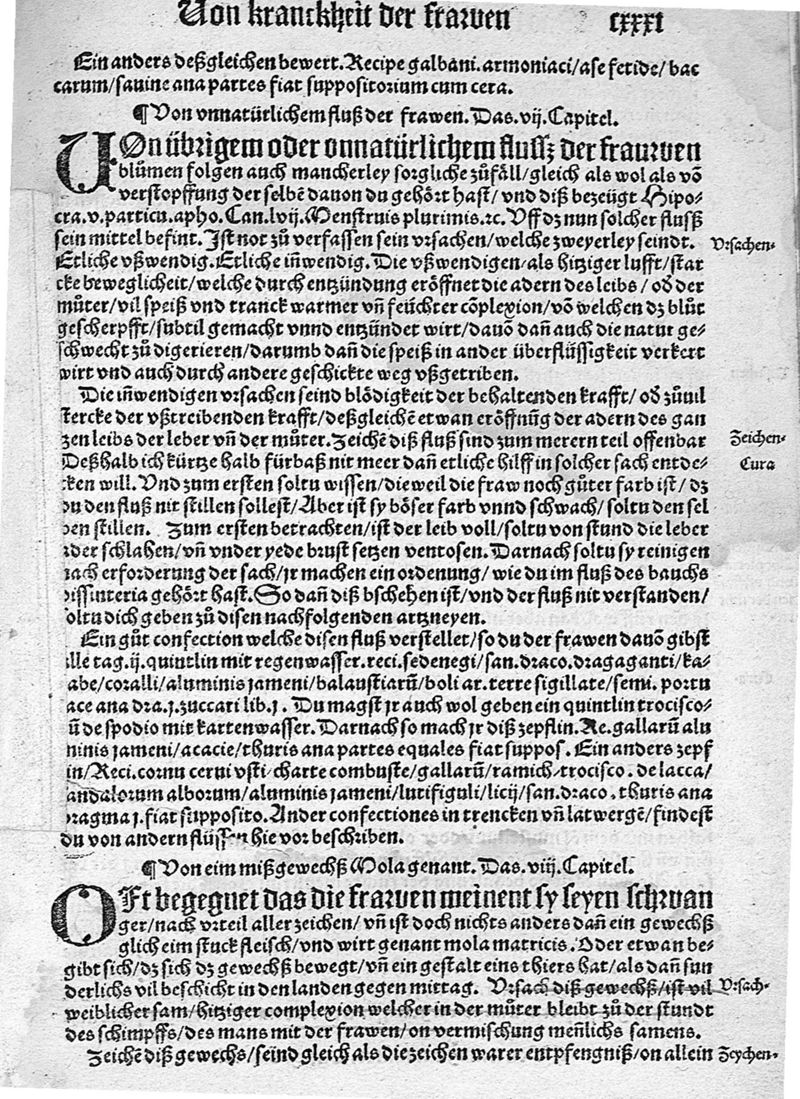 Von kranckheit der frawen cxxxi
Ein anders deßgleichen bewert. Recipe galbani. armoniaci/ase fetide/bac
carum/sauine ana partes fiat suppositorium cum cera.
¶ Von vnnatürlichem fluß der frawen. Das. vij. Capitel.
VOn übrigem oder onnatürlichem flussz der frauwen
blůmen folgen auch mancherley sorgliche zůfäll/gleich als wol als võ
verstopffung der selbẽ dauon du gehört hast/vnd diß bezeügt Hipo⸗
cra. v. particu. apho. Can. lvij. Menstruis plurimis. ꝛc. Vff dz nun solcher flusß
sein mittel befint. Ist not zů verfassen sein vrsachen/welche zweyerley seindt.
Vrsachen⸗
Etliche vßwendig. Etliche iñwendig. Die vßwendigen/als hitziger lufft/star
cke beweglicheit/welche durch entzündung eröffnet die adern des leibs/ob der
můter/vil speiß vnd tranck warmer vñ feüchter cõplexion/võ welchen dz blůt
gescherpfft/subtil gemacht vnnd entzündet wirt/dauõ dañ auch die natur ge⸗
schwecht zů digerieren/darumb dañ die speiß in ander überflüssigkeit verkert
wirt vnd auch durch andere geschickte weg vßgetriben.
Die iñwendigen vrsachen seind blödigkeit der behaltenden krafft/ob zůuil
stercke der vßtreibenden krafft/deßgleichẽ etwan eröffnũg der adern des gan
zen leibs der leber vñ der můter. Zeichẽ diß fluß sind zum merern teil offenbar
Zeichen⸗
Deßhalb ich kürtze halb fürbaß nit meer dañ etliche hilff in solcher sach entde⸗
Cura
cken will. Vnd zum ersten soltu wissen/dieweil die fraw noch gůter farb ist/dz
du den fluß nit stillen sollest/Aber ist sy böser farb vnnd schwach/soltu den sel
ben stillen. Zum ersten betrachten/ist der leib voll/soltu von stund die leber
ader schlahen/vñ vnder yede brust setzen ventosen. Darnach soltu sy reinigen
nach erforderung der sach/jr machen ein ordenung/wie du im fluß des bauchs
dissinteria gehört hast. So dañ diß bschehen ist/vnd der fluß nit verstanden/
soltu dich geben zů disen nachfolgenden artzneyen.
Ein gůt confection welche disen fluß verstellet/so du der frawen dauõ gibst
alle tag. ij. quintlin mit regenwasser. reci. sedenegi/san. draco. dragaganti/ka⸗
rabe/coralli/aluminis jameni/balaustiarũ/boli ar. terre sigillate/semi. portu
lace ana dra. j. zuccari lib. j. Du magst jr auch wol geben ein quintlin trocisco⸗
rũ de spodio mit kartenwasser. Darnach so mach jr diß zepflin. Re. gallarũ alu
minis jameni/acacie/thuris ana partes equales fiat suppos. Ein anders zepf
lin/Reci. cornu cerui vsti/charte combuste/gallarũ/ramich/trocisco. de lacca/
sandalorum alborum/aluminis jameni/lutifiguli/licij/san. draco. thuris ana
dragma j. fiat supposito. Ander confectiones in trencken vñ latwergẽ/findest
du von andern flüssen hie vor beschriben.
¶ Von eim mißgewechß Mola genant. Das. viij. Capitel.
OFt begegnet das die frawen meinent sy seyen schwan
ger/nach vrteil aller zeichen/vñ ist doch nichts anders dañ ein gewechß
glich eim stuck fleisch/vnd wirt genant mola matricis. Oder etwan be⸗
gibt sich/dz sich dz gewechß bewegt/vñ ein gestalt eins thiers hat/als dañ sun
derlichs vil beschicht in den landen gegen mittag. Vrsach diß gewechß/ist vil
Vrsach⸗
weiblicher sam/hitziger complexion welcher in der můter bleibt zů der stundt
des schimpffs/des mans mit der frawen/on vermischung meñlichs samens.
Zeichẽ diß gewechs/seind gleich als die zeichen warer entpfengniß/on allein
Zeychen⸗